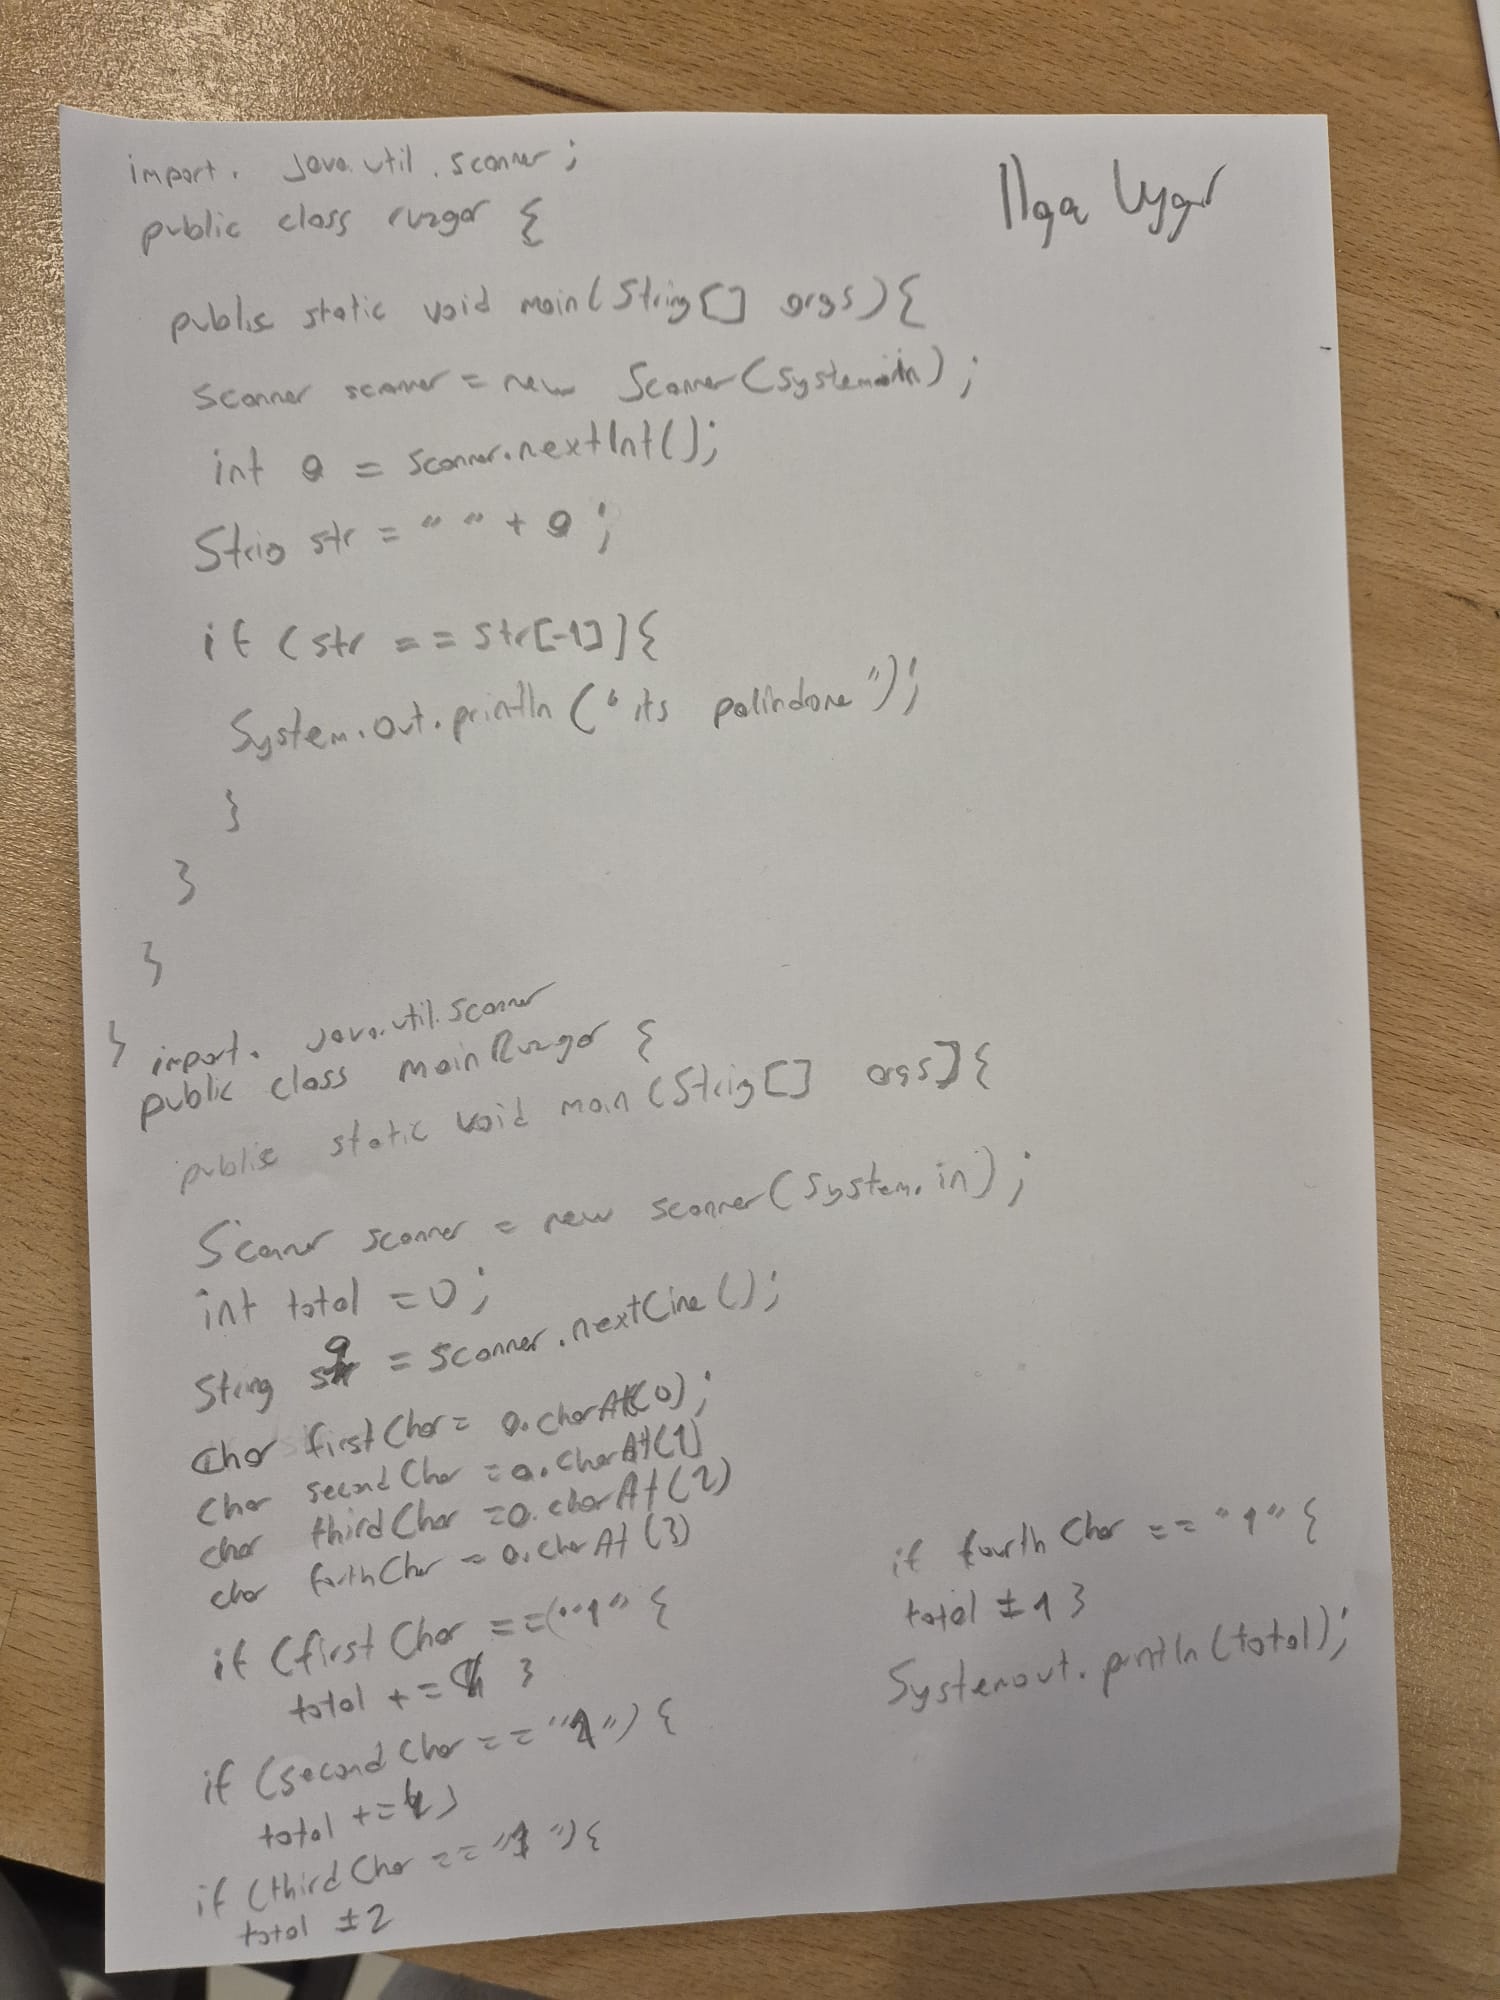 import. java.util.scanner;
Ilga Uygur
public class ruzgar {
public static void main(String[] args){
Scanner scanner = new Scanner(System.in);
int a = scanner.nextInt();
Strig str = " " + a;
if (str == str[-1]]{
System.out.println("its palindone");
}
}
}
}
import. java.util.scanner
public class mainRuzgar {
public static void main (Strig[] args]{
Scaner scanner = new scanner(System.in);
int total = 0;
String a = scanner.nextLine();
char firstChar = a.charAt(0);
char secondChar = a.charAt(1)
char thirdChar = a.charAt(2)
char forthChar = a.charAt(3)
if (firstChar ==("1" {
total += }
if (secondChar == "1") {
total += 4}
if (thirdChar == "1"){
total ±2
if fourthChar == "1" {
total ±1 }
Systemout.println(total);